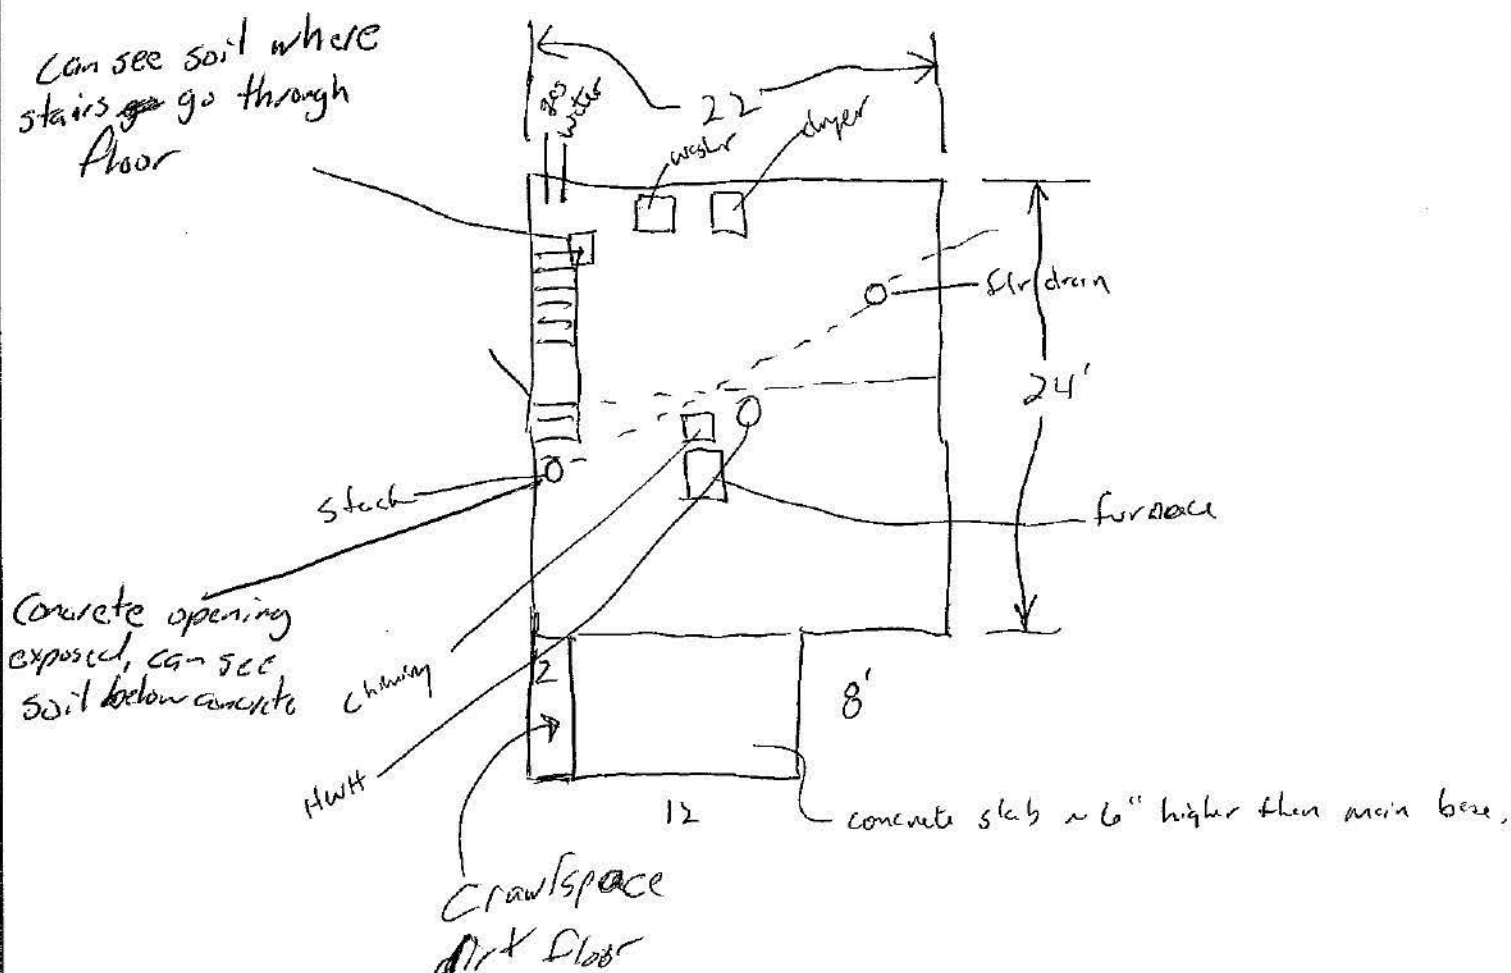 Can see soil where
stairs go through
floor
gas
water
22
washr
dryer
flr drain
24'
stack
furnace
Concrete opening
exposed, can see
soil below concrete
chimny
HWH
2
8'
12
concrete slab ~ 6" higher then main base.
Crawlspace
dirt floor